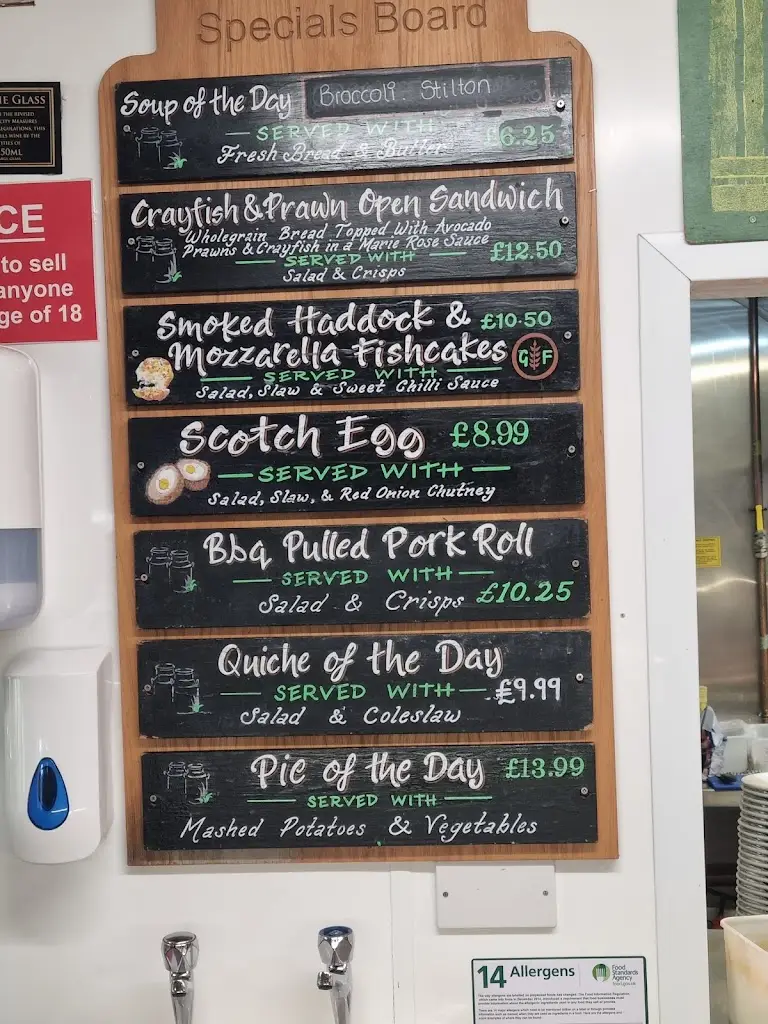 Specials Board
Soup of the Day Broccoli. Stilton
SERVED WITH £6.25
Fresh Bread & Butter
Crayfish & Prawn Open Sandwich
Wholegrain Bread Topped With Avocado
Prawns & Crayfish in a Marie Rose Sauce
SERVED WITH £12.50
Salad & Crisps
Smoked Haddock & £10.50
Mozzarella Fishcakes G F
SERVED WITH
Salad, Slaw & Sweet Chilli Sauce
Scotch Egg £8.99
SERVED WITH
Salad, Slaw, & Red Onion Chutney
Bbq Pulled Pork Roll
SERVED WITH
Salad & Crisps £10.25
Quiche of the Day
SERVED WITH £9.99
Salad & Coleslaw
Pie of the Day £13.99
SERVED WITH
Mashed Potatoes & Vegetables
GLASS
50ML
CE
to sell
anyone
ge of 18
14 Allergens
Food
Standards
Agency